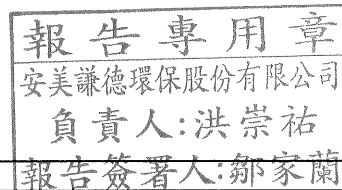 報告專用章
安美謙德環保股份有限公司
負責人:洪崇祐
報告簽署人:鄒家蘭